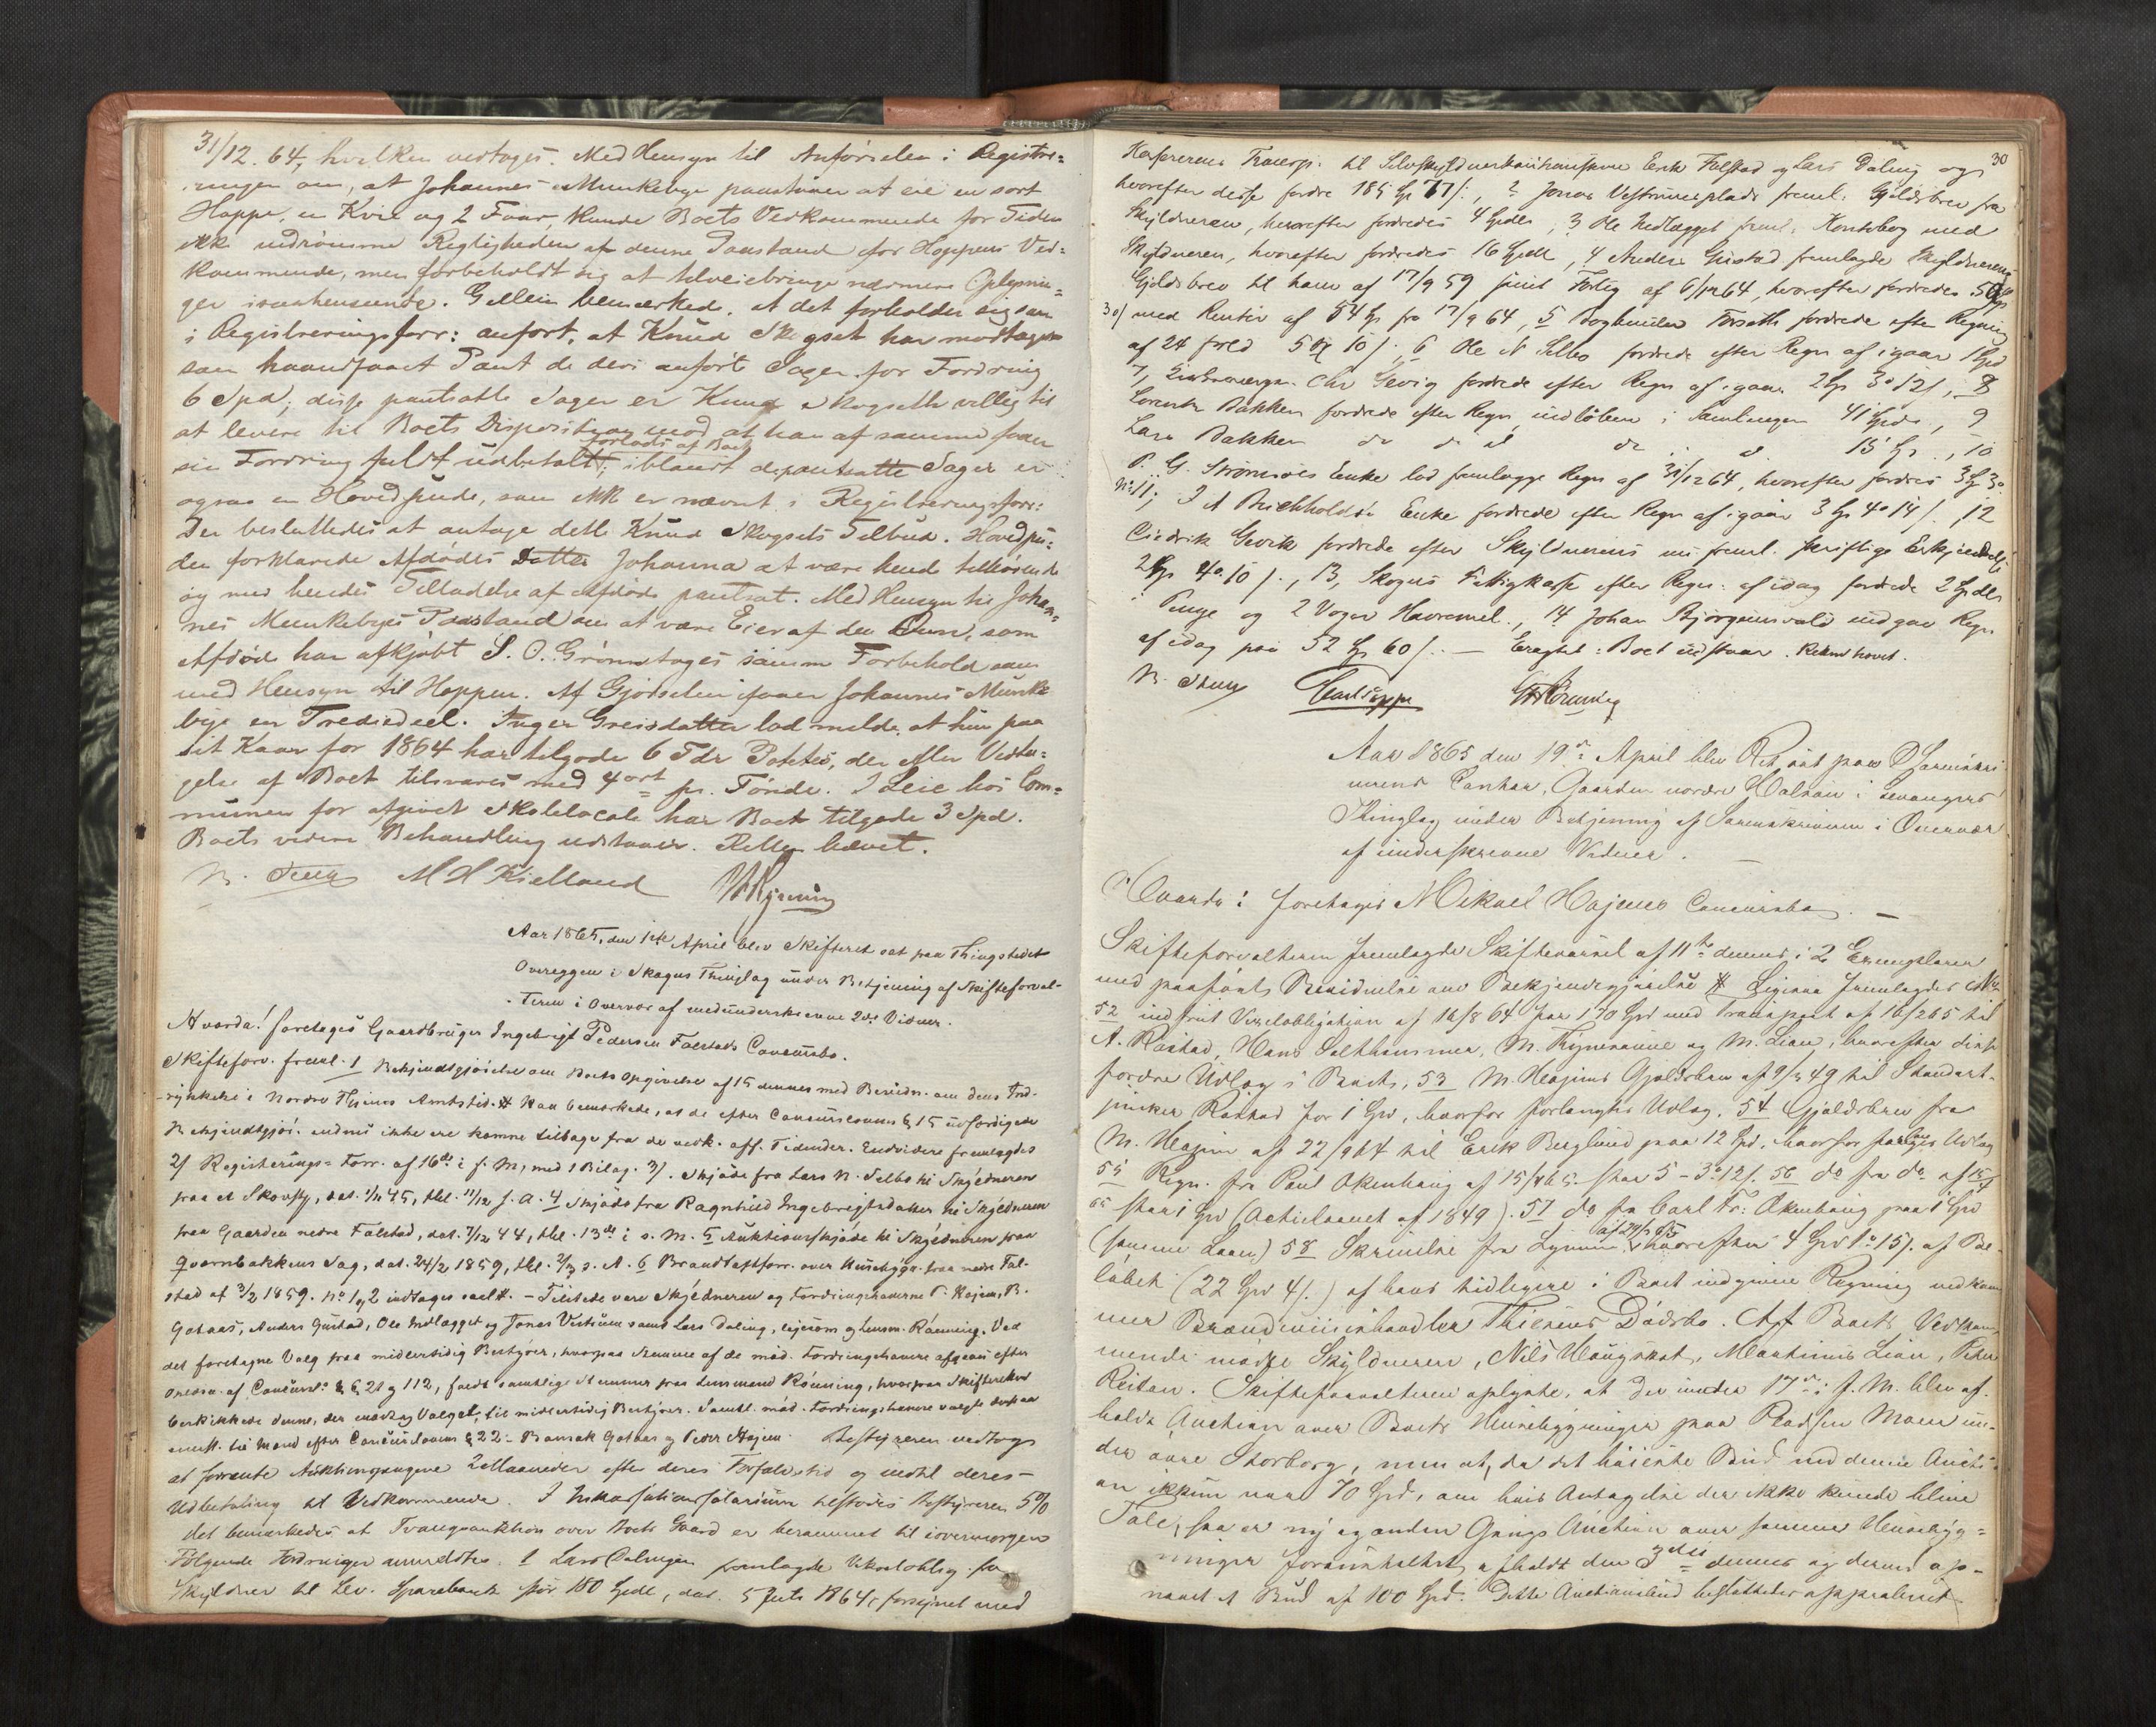 31/12. 64, hvilken vedtoges. Med Hensyn til Anførselen i Registre=
ringen om, at Johannes Munkebye paastaaer at eie en sort
Hoppe, en Kvie og 2 Faar, kunde Boets Vedkommende for Tiden
ikke indrømme Rigtigheden af denne Paastand for Hoppens Ved=
kommende, men forbeholdt sig at tilveiebringe nærmere Oplysnin=
ger isaahenseende. Gellein bemærkede, at det forholder sig som
i Registreringsforr: anført, at Knud Skogset har modtaget
som haandfaaet Pant de deri anførte Sager for Fordring
6 Spd; disse pantsatte Sager er Knud Skogseth villig til
at levere til Boets Disposition mod at han af samme faaer
sin Fordring fuldt udbetalt forlods af Boet; iblandt de pantsatte Sager er
ogsaa en Hovedpude, som ikke er nævnt i Registreringsforr:
Der besluttedes at antage dette Knud Skogsets Tilbud. Hovedpu=
den forklarede Afdødes Datter Johanna at være hende tilhørende
og med hendes Tilladelse af Afdøde pantsat. Med Hensyn til Johan=
nes Munkebyes Paastand om at være Eier af den Ovn, som
Afdøde har afkjøbt S. O. Grønn toges samme Forbehold som
med Hensyn til Hoppen. Af Gjødselen faaer Johannes Munke
bye en Trediedeel. Inger Greisdatter lod melde, at hun paa
sit Kaar for 1864 har tilgode 6 Tdr Poteter, der efter Vedta=
gelse af Boet tilsvares med 4 ort pr. Tønde. I Leie hos Com=
munen for afgivet Skolelocale har Boet tilgode 3 Spd.
Boets videre Behandling udstaaer. Retten hævet.
M H Kielland
Aar 1865, den 1ste April blev Skifteret sat paa Thingstedet
Overeggen i Skogns Thinglag under Betjening af Skifteforval-
teren i Overvær af medunderskrevne 2de Vidner.
Hvorda! foretoges Gaardbruger Ingebrigt Pedersen Falstads Concursbo.
Skifteforv. freml. 1 Bekjendtgjørelse om Boets Opgivelse af 15 dennes med Beviidn. om dens Ind-
rykkelse i Nordre Thjems Amtstid. kan bemærkede, at de efter Concurslovens § 15 udfærdigede
Bekjendtgjør. endnu ikke ere komne tilbage fra de vedk. off. Tidender. Endvidere fremlagdes
2) Registrerings-Forr. af 16de i f. M, med 1 Bilag. 3). Skjøde fra Lars N. Selbo til Skyldneren
paa et Skovsty, dat. 1/11 45, thl. 11/12 s. A. 4 Skjøde fra Ragnhild Ingebrigtsdatter til Skyldneren
paa Gaarden nedre Falstad, dat. 7/12 44, thl. 13de i s. M. 5 Auktionsskjøde til Skyldneren paa
Qvernbakkens Sag, dat. 24/2 1859, thl. 2/3 s. A. 6 Brandtaxtforr. over Huusbygn. paa nedre Fal-
stad af 3/2 1859. No 1 og 2 indtages saal. - Tilstede vare Skyldneren og Fordringshaverne P. Hojem, B.
Gotaas, Anders Gustad, Ole Nedlægget og Jonas Vestrum samt Lars Daling, ligesom og Lensm. Rønning. Ved
det foretagne Valg paa midlertidig Bestyrer, hvorpaa Stemme af de mød. Fordringshavere afgaves efter
Oplæsn. af Concursl. § § 21 og 112, faldt samtlige Stemmer paa Lensmand Rønning, hvorpaa Skifteretten
beskikkede denne, der modtog Valget, til midlertidig Bestyrer. Samtl. mød. Fordringshavere valgte derpaa
til Mænd efter Concurslovens § 22: Baroak Gotaas og Peder Hojem. Bestyreren vedtog
at forrente Auktionspengene 2 Maaneder efter deres Forfaldstid og indtil deres
Udbetaling til Vedkommende. I Inkassationssalarium tilstodes Bestyreren 5%
Det bemærkedes at Tvangsauktion over Boets Gaard er berammet til iovermorgen
Følgende Fordringer anmeldtes. 1 Lars Dalingen fremlagde Vexeloblig. fra
Skyldner til Lev. Sparebank for 180 Spdl, dat. 5 Juli 1864, forsynet med
30
Kassererens Transp. til Selvskyldnerkautionisterne Erik Falstad og Lars Daling og
hvorefter disse fordre 185 Sp 77 /:, 2 Jonas Vestrumsplads freml. Gjeldsbrev fra
Skyldneren, hvorefter fordredes 4 Spdlr, 3 Ole Nedlægget freml. Kontrabog med
Skyldneren, hvorefter fordredes 16 Spdlr, 4 Anders Gustad fremlagde Skyldnerens
Gjeldsbrev til ham af 17/9 59 samt Forlig af 6/12 64, hvorefter fordredes 50 Sp
30/ med Renter af 54 Sp fra 17/9 64, 5 Forseth fordrede efter Regning
af 24 5 10 /., 6 Ole N Selbo fordrede efter Regn af igaar 1 Spd
7, Chr Gevig fordrede efter Regn af igaar 2 Sp 3o 12 /, 8
Lorents Bakken fordrede efter Regn indløben i Samlingen 41 Spd, 9
Lars Bakken do do do 15 Sp., 10
P. G. Strømsøes Enke lod fremlægge Regn af 31/12 64, hvorefter fordres 3 Sp 3o
No 11; J A Buchholdts Enke fordrede efter Regn af igaar 3 Sp 4o 14 /., 12
Gevik fordrede efter Skyldnerens nu freml. skriftlige Erkjendelse
2 Sp 4o 10 /., 13, Skogns Fattigkasse efter Regn. af idag fordrede 2 Spdlr
i Penge og 2 Voger Havremel., 14 Johan Bjørgumsvald indgav Regn
af idag paa 52 Sp 60 /. — Eragtet: Boet udstaar. Retten hævet.
Aar 1865 den 19de April blev Ret sat paa Sorenskri
verens Contor, Gaarden nordre Halsan i Levangers
Thinglag under Betjening af Sorenskriveren i Overvær
af underskrevne Vidner.
Hvorda: foretoges Mikael Hojems Concursbo. —
Skifteforvalteren fremlagde Skiftevarsel af 11te dennes i 2 Exemplarer
med paaførte Beviidnelse om Bekjendtgjørelse. Ligesaa fremlagdes
52 Vexelobligation af 16/8 64 paa 170 Spd med Transport af 16/2 65 til
A. Røstad, Hans Salthammer, M. Trynesaune og M. Lian, hvorefter disse
fordre Udlæg i Boet, 53 M. Hojems Gjældsbrev af 9/3 49 til Standart-
junker Røstad for 1 Spd, hvorfor forlanges Udlæg, 54 Gjældsbrev fra
M. Hojem af 22/9 64 til Erik Berglund paa 12 Spd, hvorfor forlanges Udlæg
55 Regn. fra Paul Okenhaug af 15/4 65 stor 5 - 3o 12 /. 56 do fra do af 15/4
65 stor 1 Spd (Actielaanet af 1849). 57 do fra Carl Fr: Okenhaug paa 1 Spd
(samme Laan) 58 Skrivelse fra Lynum af 29/3 65, hvorefter 4 Spd 1o 15 /. af Be-
løbet (22 Spd 4 /.) af hans tidligere i Boet indgivne Regning vedkom
mer Brændeviinshandler Thirems Dødsbo. Af Boets Vedkom
mende mødte Skyldneren, Nils Haugskot, Martinus Lian, Peter
Reitan. Skifteforvalteren oplyste, at der under 17de i f. M. blev af-
holdt Auction over Boets Huusbygninger paa Rodssen Moan un-
der øvre Storborg, men at, da det høieste Bud ved denne Aucti-
on ikkun naae 70 Spd, om hvis Antagelse der ikke kunde blive
Tale, saa er ny og anden Gangs Auction over samme Huusbyg=
ninger foranstaltet afholdt den 3die dennes og derved op-
naaet et Bud af 100 Spd. Dette Auctionsbud besluttedes approberet